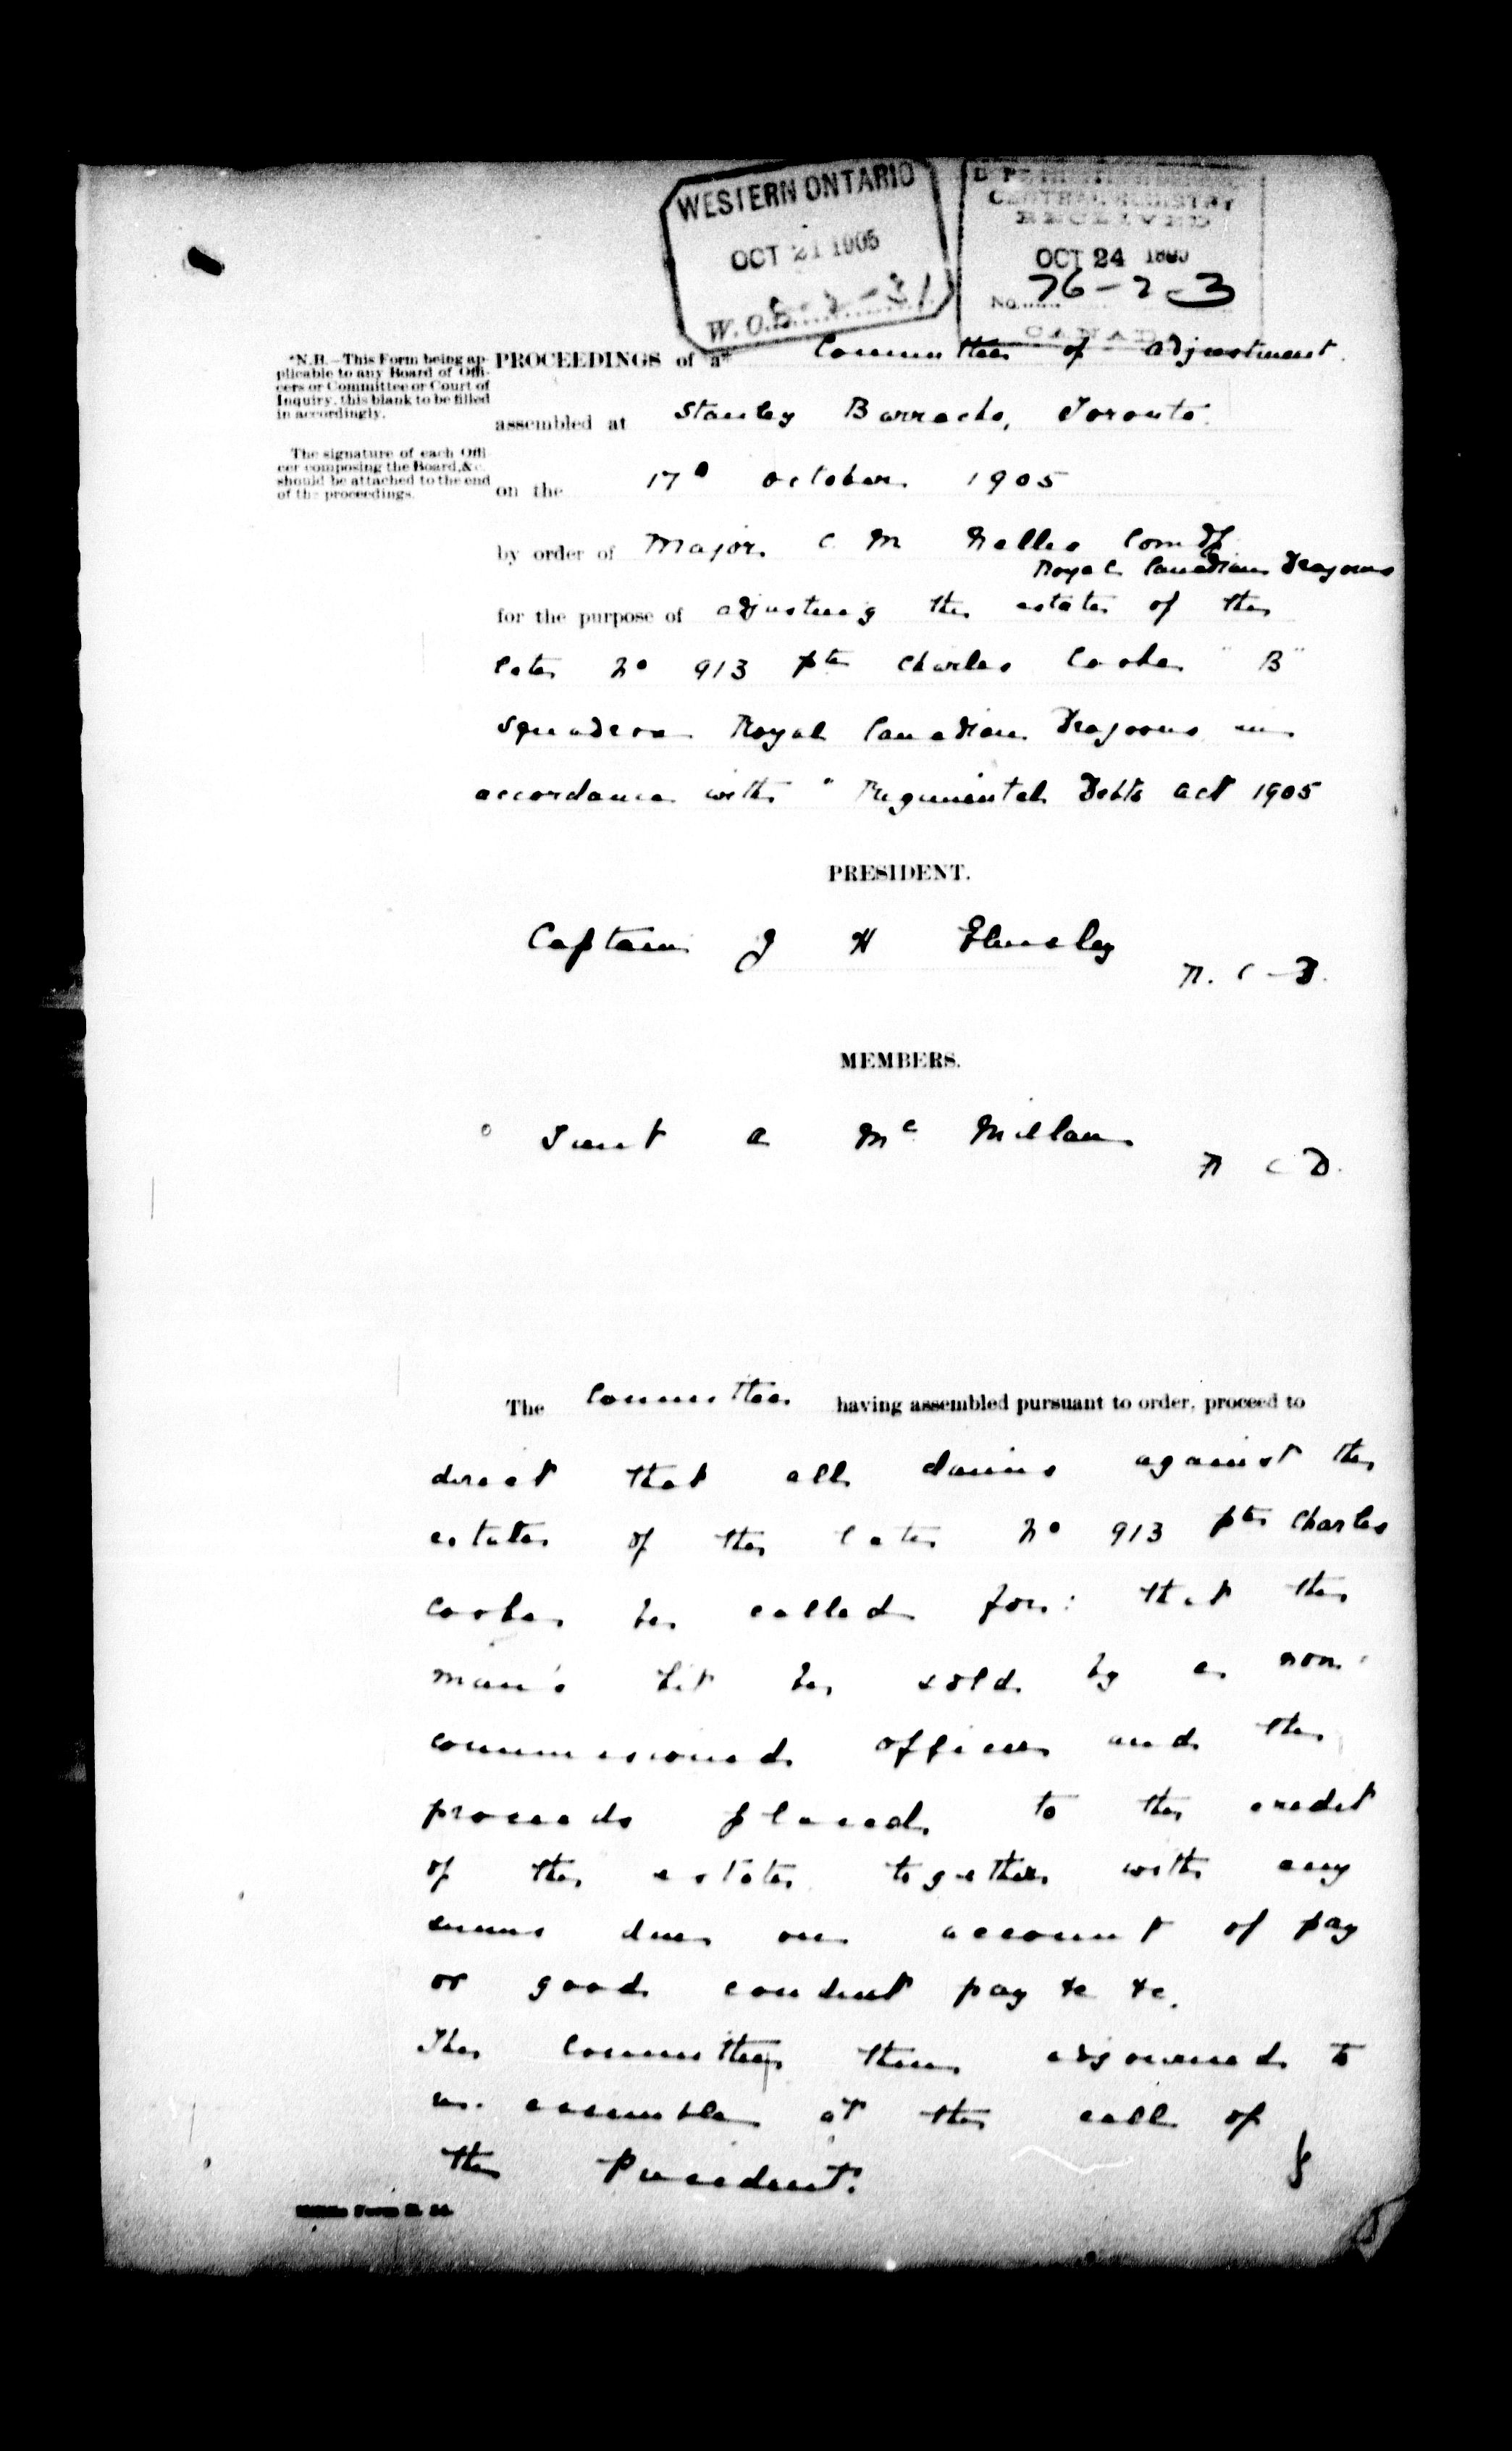 WESTERN ONTARIO
OCT 21 1905
W.O.
CENTRAL REGISTRY
RECEIVED
OCT 24
No. 76-2-3
CANADA
*N.B.—This Form being ap-
plicable to any Board of Offi-
cers or Committee or Court of
Inquiry, this blank to be filled
in accordingly.
The signature of each Offi-
cer composing the Board, &c.
should be attached to the end
of the proceedings.
PROCEEDINGS of a* Committee of adjustment.
assembled at Stanley Barracks, Toronto.
on the 17º October 1905
by order of Major C M Nelles Comdg
Royal Canadian Dragoons
for the purpose of adjusting the estate of the
late No 913 pte Charles Cooke "B"
Squadron Royal Canadian Dragoons in
accordance with "Regimental Debts act 1905
PRESIDENT.
Captain J H Elmsley
R. C. D.
MEMBERS.
Lieut A Mc Millan
R C D.
The Committee having assembled pursuant to order, proceed to
direct that all claims against the
estate of the late No 913 pte Charles
Cooke be called for: that the
man's kit be sold by a non-
commissioned officer and the
proceeds placed to the credit
of the estate together with any
sums due on account of pay
or good conduct pay &c &c.
The Committee then adjourned to
re-assemble at the call of
the President.
Militia Form